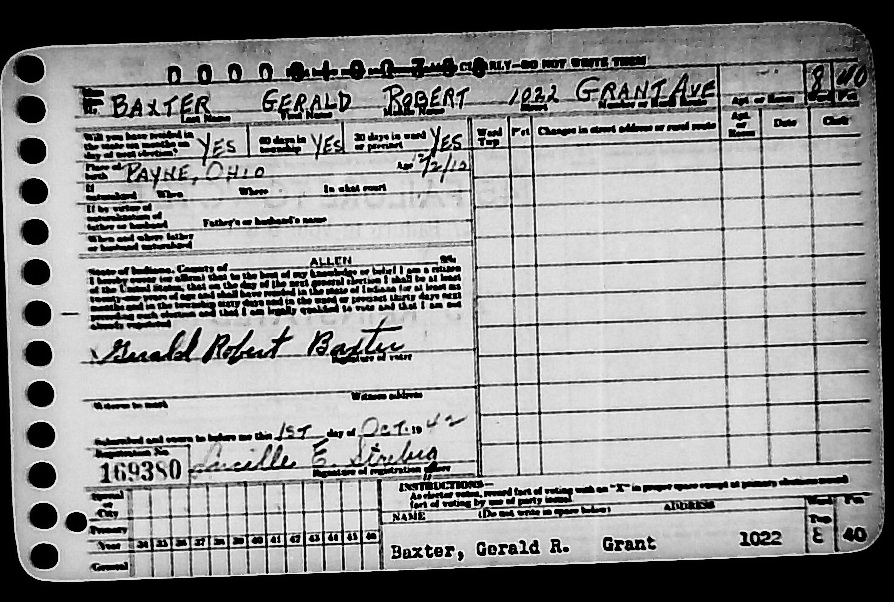 CLEARLY—DO NOT WRITE THEM
BAXTER GERALD ROBERT 1022 GRANT AVE 8 40
Last Name First Name Middle Name Street Number or Rural Route Apt. or Room Ward Pct
Will you have resided in the state six months on day of next election? YES 60 days in township YES 30 days in ward or precinct YES
Ward Twp Pct Changes in street address or rural route Apt. or Room Date Clerk
Place of birth PAYNE, OHIO Age 12/2/12
If naturalized When Where In what court
If by virtue of naturalization of father or husband Father's or husband's name
When and where father or husband naturalized
State of Indiana, County of ALLEN SS.
I hereby swear (or affirm) that to the best of my knowledge or belief I am a citizen
of the United States, that on the day of the next general election I shall be at least
twenty-one years of age and shall have resided in the state of Indiana for at least six
months and in the township sixty days and in the ward or precinct thirty days next
preceding such election and that I am legally qualified to vote and that I am not
already registered
Gerald Robert Baxter
Signature of voter
Witness to mark Witness address
Subscribed and sworn to before me this 1ST day of OCT. 1942
Registration No.
169380 Lucille E. Strebig
Signature of registration officer
INSTRUCTIONS—
As elector votes, record fact of voting with an "X" in proper space except at primary elections record
fact of voting by use of party initial
NAME (Do not write in space below) ADDRESS Ward Twp Pct
Special
City
Primary
Year 34 35 36 37 38 39 40 41 42 43 44 45 46
General
Baxter, Gerald R. Grant 1022 8 40